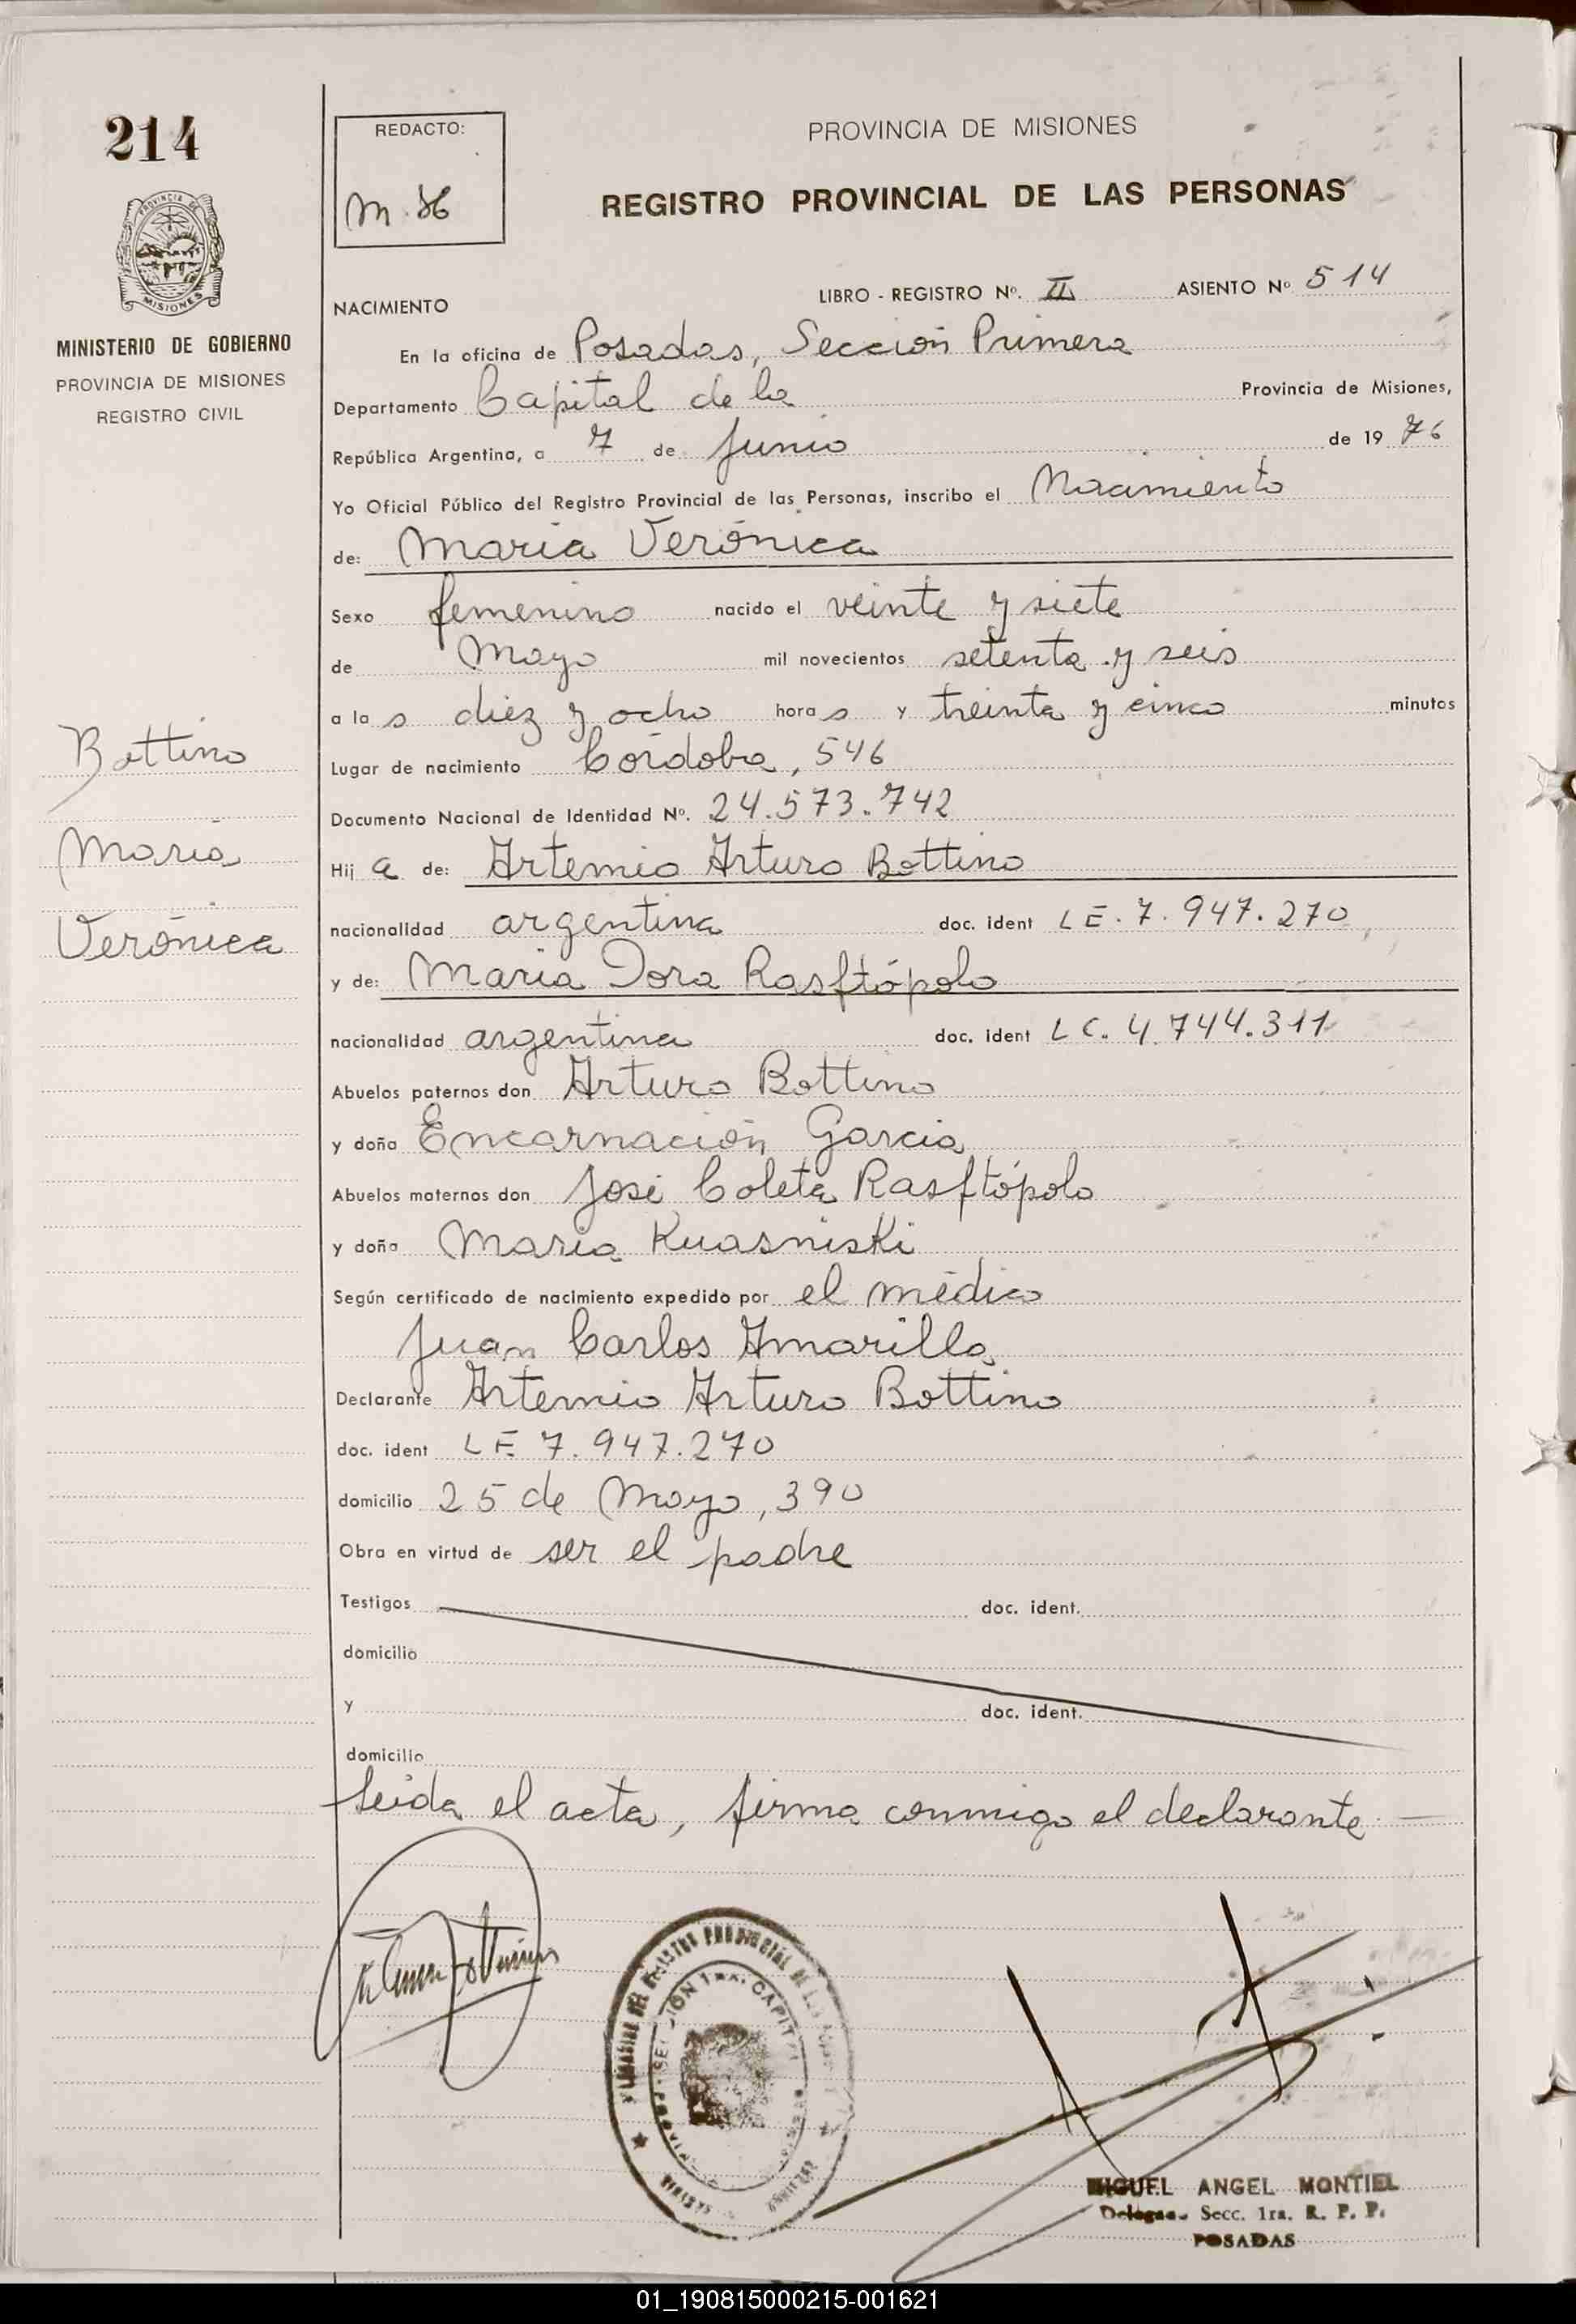 214
MINISTERIO DE GOBIERNO
PROVINCIA DE MISIONES
REGISTRO CIVIL
Bottino
María
Verónica
REDACTO:
PROVINCIA DE MISIONES
REGISTRO PROVINCIAL DE LAS PERSONAS
NACIMIENTO LIBRO - REGISTRO Nº. II ASIENTO Nº 514
En la oficina de Posadas, Sección Primera
Departamento Capital de la Provincia de Misiones,
República Argentina, a 7 de Junio de 19 76
Yo Oficial Público del Registro Provincial de las Personas, inscribo el Nacimiento
de: María Verónica
Sexo femenino nacido el veinte y siete
de Mayo mil novecientos setenta y seis
a la s diez y ocho hora s y treinta y cinco minutos
Lugar de nacimiento Córdoba, 546
Documento Nacional de Identidad Nº. 24.573.742
Hij a de: Artemio Arturo Bottino
nacionalidad argentina doc. ident LE. 7.947.270
y de: María Dora Rasftópolo
nacionalidad argentina doc. ident LC. 4.744.311
Abuelos paternos don Arturo Bottino
y doña Encarnación García
Abuelos maternos don José Coleta Rasftópolo
y doña María Kuasniski
Según certificado de nacimiento expedido por el médico
Juan Carlos Amarilla
Declarante Artemio Arturo Bottino
doc. ident LE. 7.947.270
domicilio 25 de Mayo, 390
Obra en virtud de ser el padre
Testigos doc. ident.
domicilio
y doc. ident.
domicilio
Leída el acta, firma conmigo el declarante
MIGUEL ANGEL MONTIEL
Secc. 1ra. R. P. P.
POSADAS
01_190815000215-001621